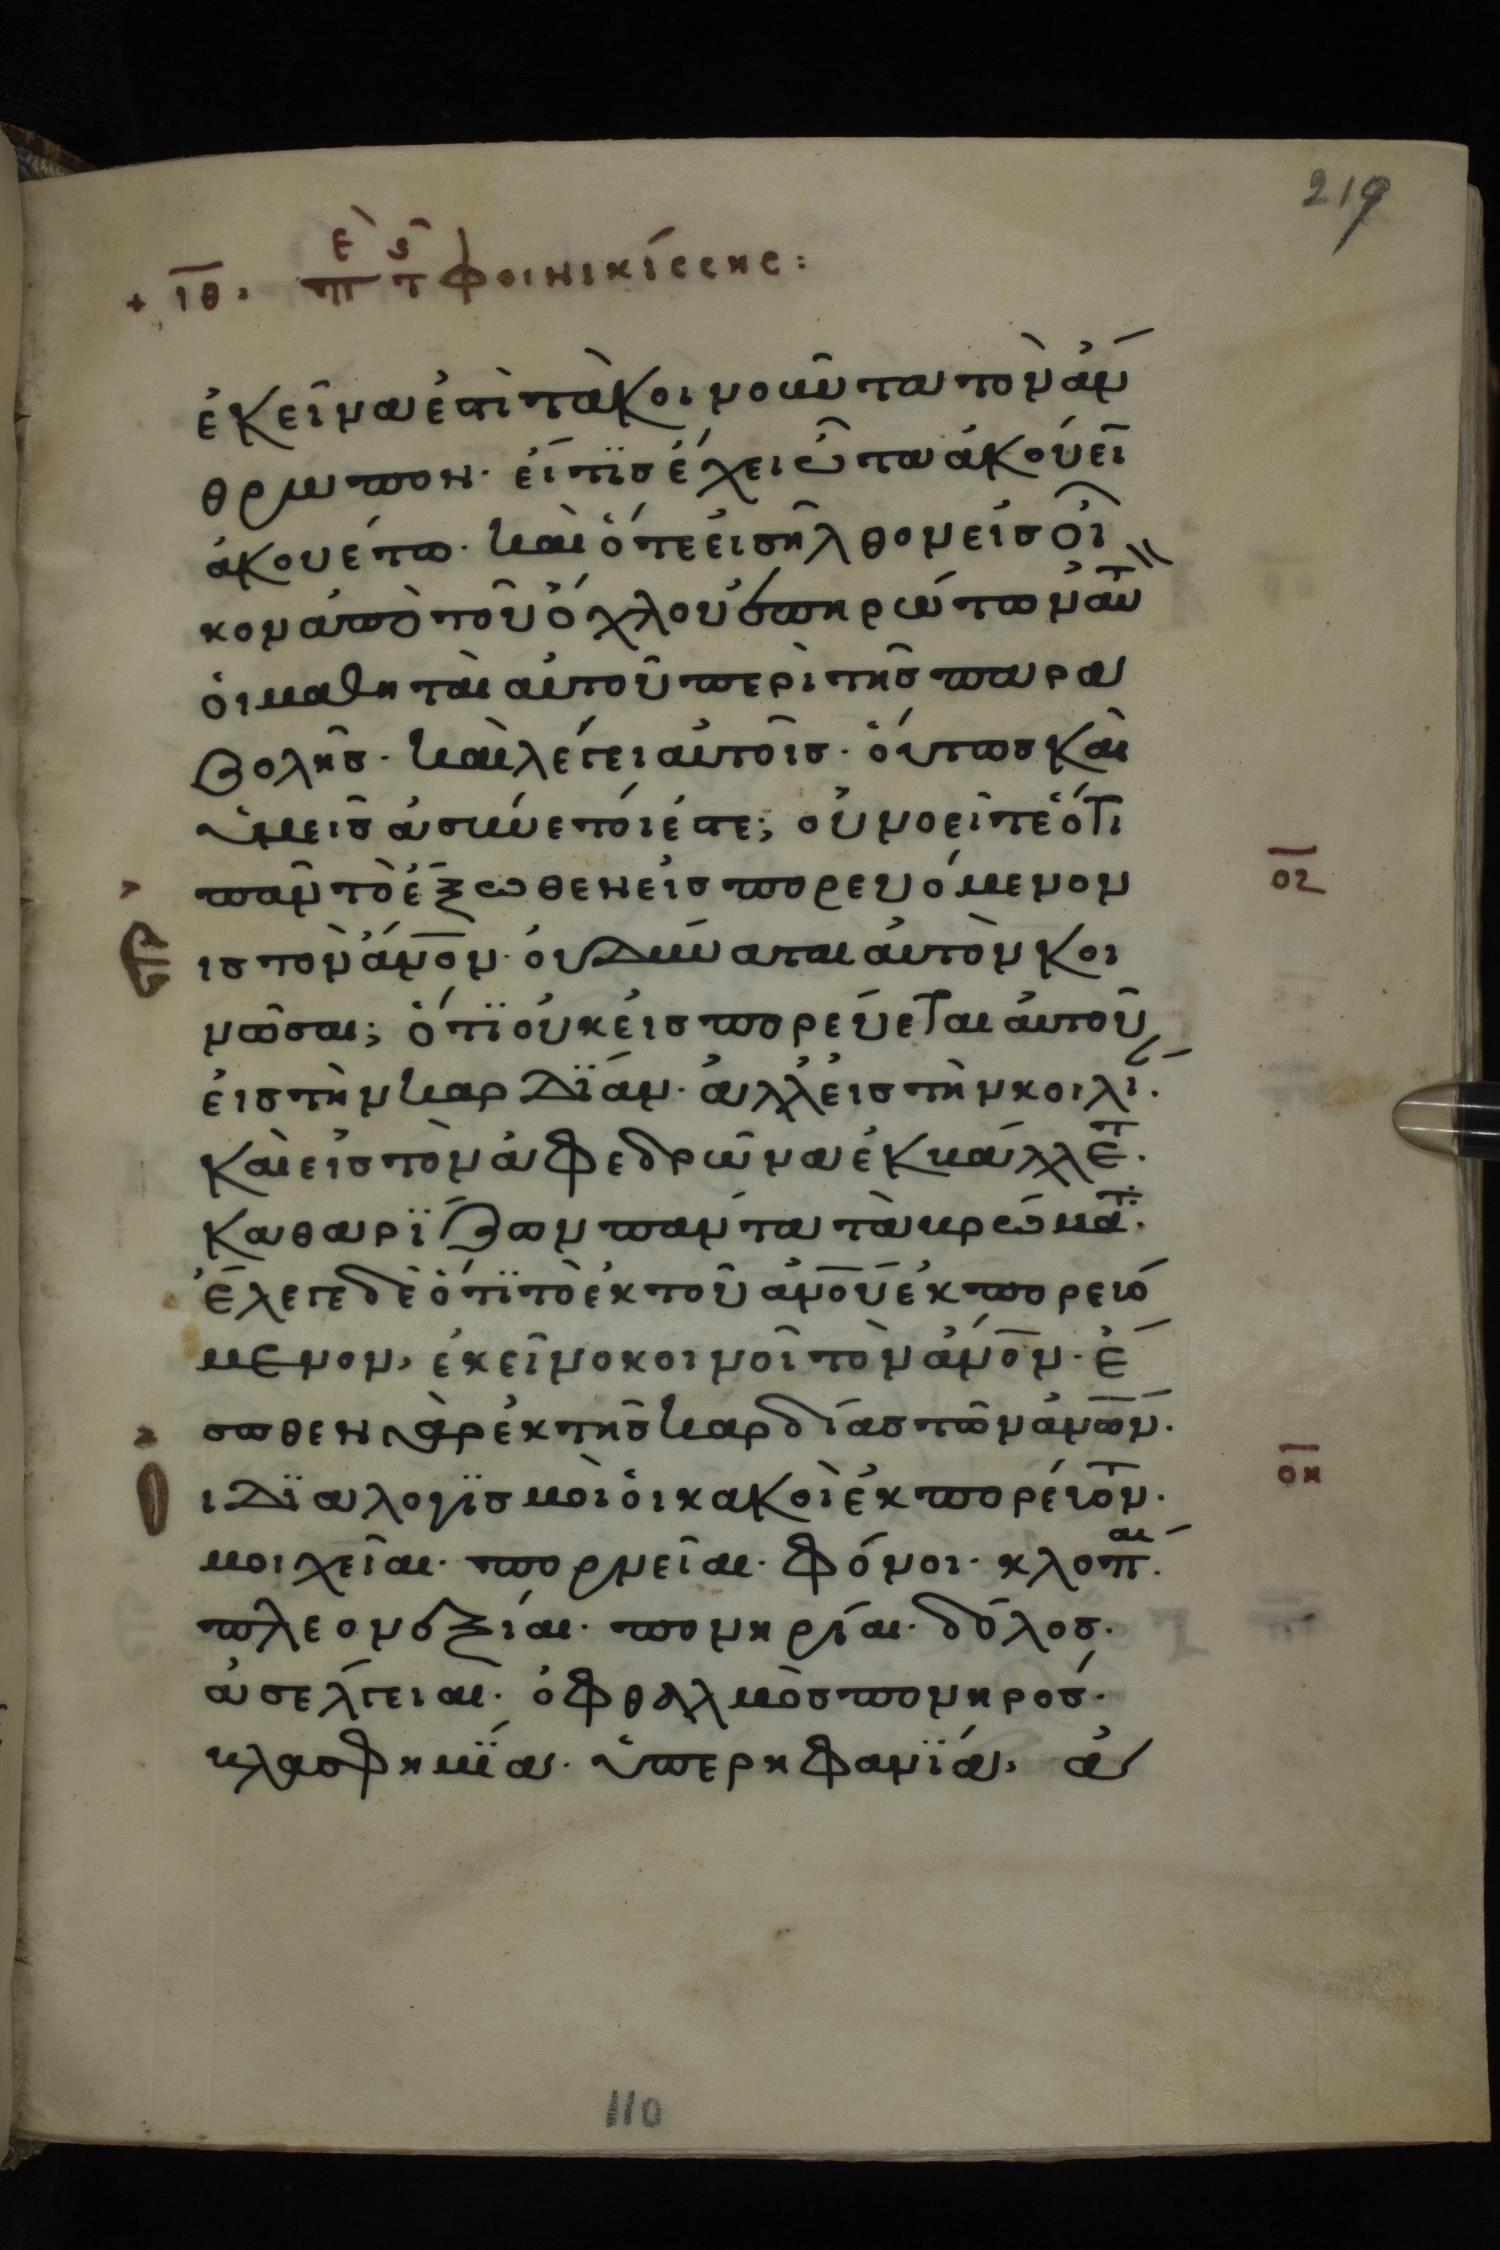 219
+ ιθ. περὶ τῆς φοινικίσσης:
ἐκεῖνα ἐπὶ τὰ κοινοῦντα τὸν ἄν
θρωπον. εἴ τϊς ἔχει ὦτα ἀκούειν
ἀκουέτω. καὶ ὅτε εἰσῆλθον εἰς οἶ
κον ἀπὸ τοῦ ὄχλου ἐπηρώτων αὐτ
ὁι μαθηταὶ αὐτοῦ περὶ τῆς παρα
βολῆς. καὶ λέγει αὐτοῖς. ὅυτως καὶ
ὑμεῖς ἀσύνετοί ἐστε; οὐ νοεῖτε ὅτι
πᾶν τὸ ἔξωθεν εἰσπορευόμενον
ις τὸν ἄνον. ὀυ δύναται ἀυτὸν κοι
νῶσαι; ὅτϊ οὐκ εἰσπορεύεται ἀυτοῦ
ἐις τὴν καρδΐαν. ἀλλ' ἐις τὴν κοιλί.
καὶ εἰς τὸν ἀφεδρῶνα ἐκβάλλετ.
καθαρΐζων πάντα τὰ βρώματ.
ἔλεγε δὲ ὅτϊ τὸ ἐκ τοῦ ἀνου ἐκπορευό
μενον, ἐκεῖνο κοινοῖ τὸν ἄνον. ἔ
σωθεν γὰρ ἐκ τῆς καρδίας τῶν ἀνων.
ι δϊαλογϊσμοὶ ὁι κακοὶ ἐκπορέυοντ.
μοιχεῖαι. πορνεῖαι. φόνοι. κλοπαί.
πλεονεξίαι. πονηρίαι. δόλος.
ἀσέλγειαι. ὀφθαλμὸς πονηρος.
βλασφημΐα. ὑπερηφανΐα, ἀ
ογ
οκ
110